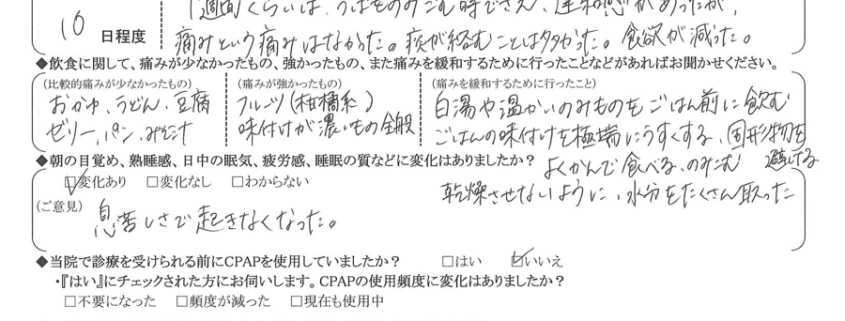 1週間くらいは、つばをのみこむ時でさえ、違和感があったが、
10 日程度 痛みという痛みはなかった。痰が絡むことは多かった。食欲が減った。
◆飲食に関して、痛みが少なかったもの、強かったもの、また痛みを緩和するために行ったことなどがあればお聞かせください。
(比較的痛みが少なかったもの) (痛みが強かったもの) (痛みを緩和するために行ったこと)
おかゆ、うどん、豆腐 フルーツ(柑橘系) 白湯や温かいのみものをごはん前に飲む
ゼリー、パン、みそ汁 味付けが濃いもの全般 ごはんの味付けを極端にうすくする、固形物を
避ける
◆朝の目覚め、熟睡感、日中の眠気、疲労感、睡眠の質などに変化はありましたか? よくかんで食べる、のみこむ
☑変化あり □変化なし □わからない 乾燥させないように、水分をたくさん取った
(ご意見) 息苦しさで起きなくなった。
◆当院で診療を受けられる前にCPAPを使用していましたか? □はい ☑いいえ
・『はい』にチェックされた方にお伺いします。CPAPの使用頻度に変化はありましたか?
□不要になった □頻度が減った □現在も使用中